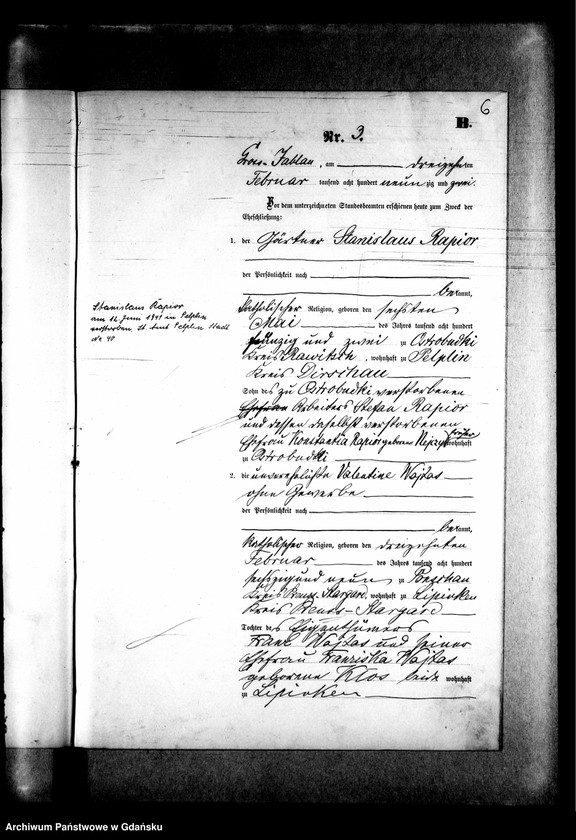 6
B.
Nr. 3.
Gross-Jablau, am dreizehnten
Februar tausend acht hundert neunzig und zwei.
Vor dem unterzeichneten Standesbeamten erschienen heute zum Zweck der
Eheschließung:
1. der Gärtner Stanislaus Rapior
der Persönlichkeit nach
bekannt,
katholischer Religion, geboren den sechsten
Mai des Jahres tausend acht hundert
und zwei zu Ostrobudki
Kreis Rawitsch, wohnhaft zu Pelplin
Kreis Dirschau
Sohn des zu Ostrobudki verstorbenen
Ehefrau Arbeiters Stefan Rapior
und dessen daselbst verstorbenen
Ehefrau Konstantia Rapior geborene früher wohnhaft
zu Ostrobudki
2. die unverehelichte Valentine Wojtas
ohne Gewerbe
der Persönlichkeit nach
bekannt,
katholischer Religion, geboren den dreizehnten
Februar des Jahres tausend acht hundert
sechszig und neun zu
Kreis Preuss. Stargard, wohnhaft zu Lipinken
Kreis Preuss-Stargard
Tochter des Eigenthümers
Franz Wojtas und seiner
Ehefrau Franziska Wojtas
geborene Klos beide wohnhaft
zu Lipinken
Stanislaus Rapior
am 12. Juni 1941 in Pelplin
verstorben. St. Amt Pelplin Stadt
No 40
Archiwum Państwowe w Gdańsku